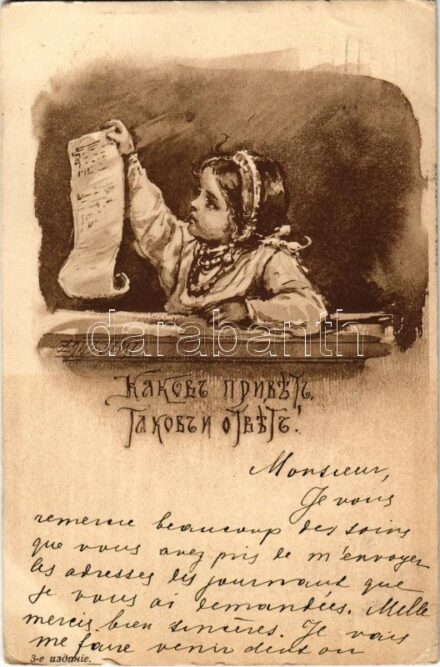 darabanth
Каковъ привѣтъ,
Таковъ и отвѣтъ!
Monsieur,
Je vous
remercie beaucoup des soins
que vous avez pris de m'envoyer
les adresses des journaux que
je vous ai demandées. Mille
mercis bien sincères. Je vais
me faire venir deux ou
3-е изданіе.